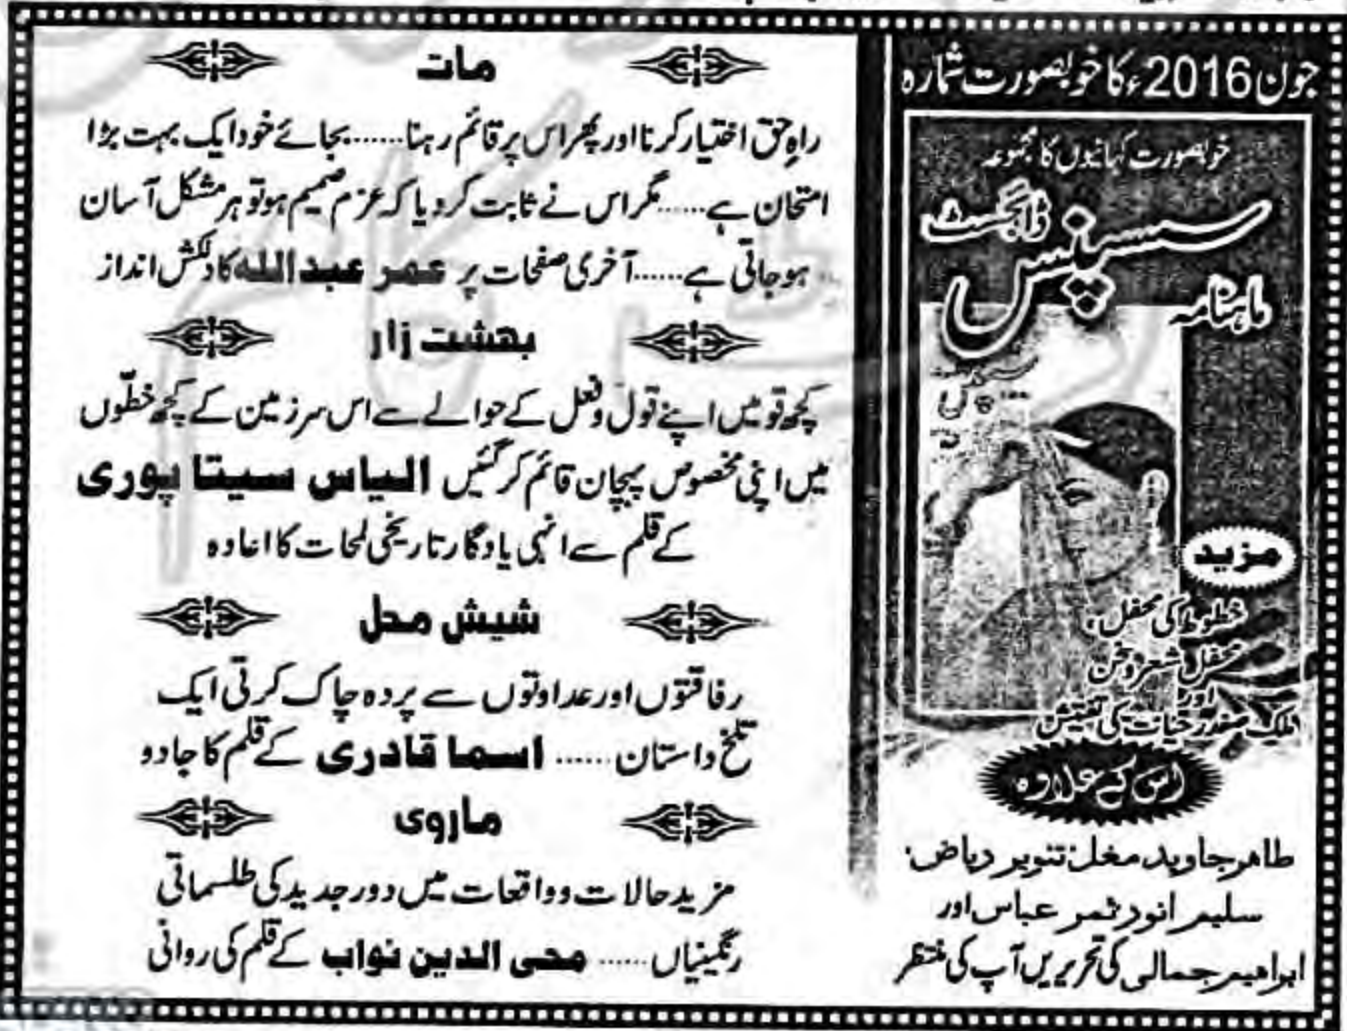 جون 2016ء کا خوبصورت شمارہ
خوبصورت کہانیوں کا مجموعہ
سسپنس ڈائجسٹ
ماہنامہ
مزید
خطوط کی محفل،
محفل شعر و سخن
اور
ملک صفدر حیات کی تفتیش
اس کے علاوہ
طاہر جاوید مغل تنویر ریاض،
سلیم انور ثمر عباس اور
ابراہیم جمالی کی تحریریں آپ کی منتظر
مات
راہِ حق اختیار کرنا اور پھر اس پر قائم رہنا...... بجائے خود ایک بہت بڑا
امتحان ہے...... مگر اس نے ثابت کر دیا کہ عزم صمیم ہو تو ہر مشکل آسان
ہو جاتی ہے...... آخری صفحات پر عمر عبداللہ کا دلکش انداز
بہشت زار
کچھ قومیں اپنے قول و فعل کے حوالے سے اس سرزمین کے کچھ خطّوں
میں اپنی مخصوص پہچان قائم کر گئیں الیاس سیتا پوری
کے قلم سے انہی یادگار تاریخی لمحات کا اعادہ
شیش محل
رفاقتوں اور عداوتوں سے پردہ چاک کرتی ایک
تلخ داستان ...... اسما قادری کے قلم کا جادو
ماروی
مزید حالات و واقعات میں دور جدید کی طلسماتی
رنگینیاں...... محی الدین نواب کے قلم کی روانی